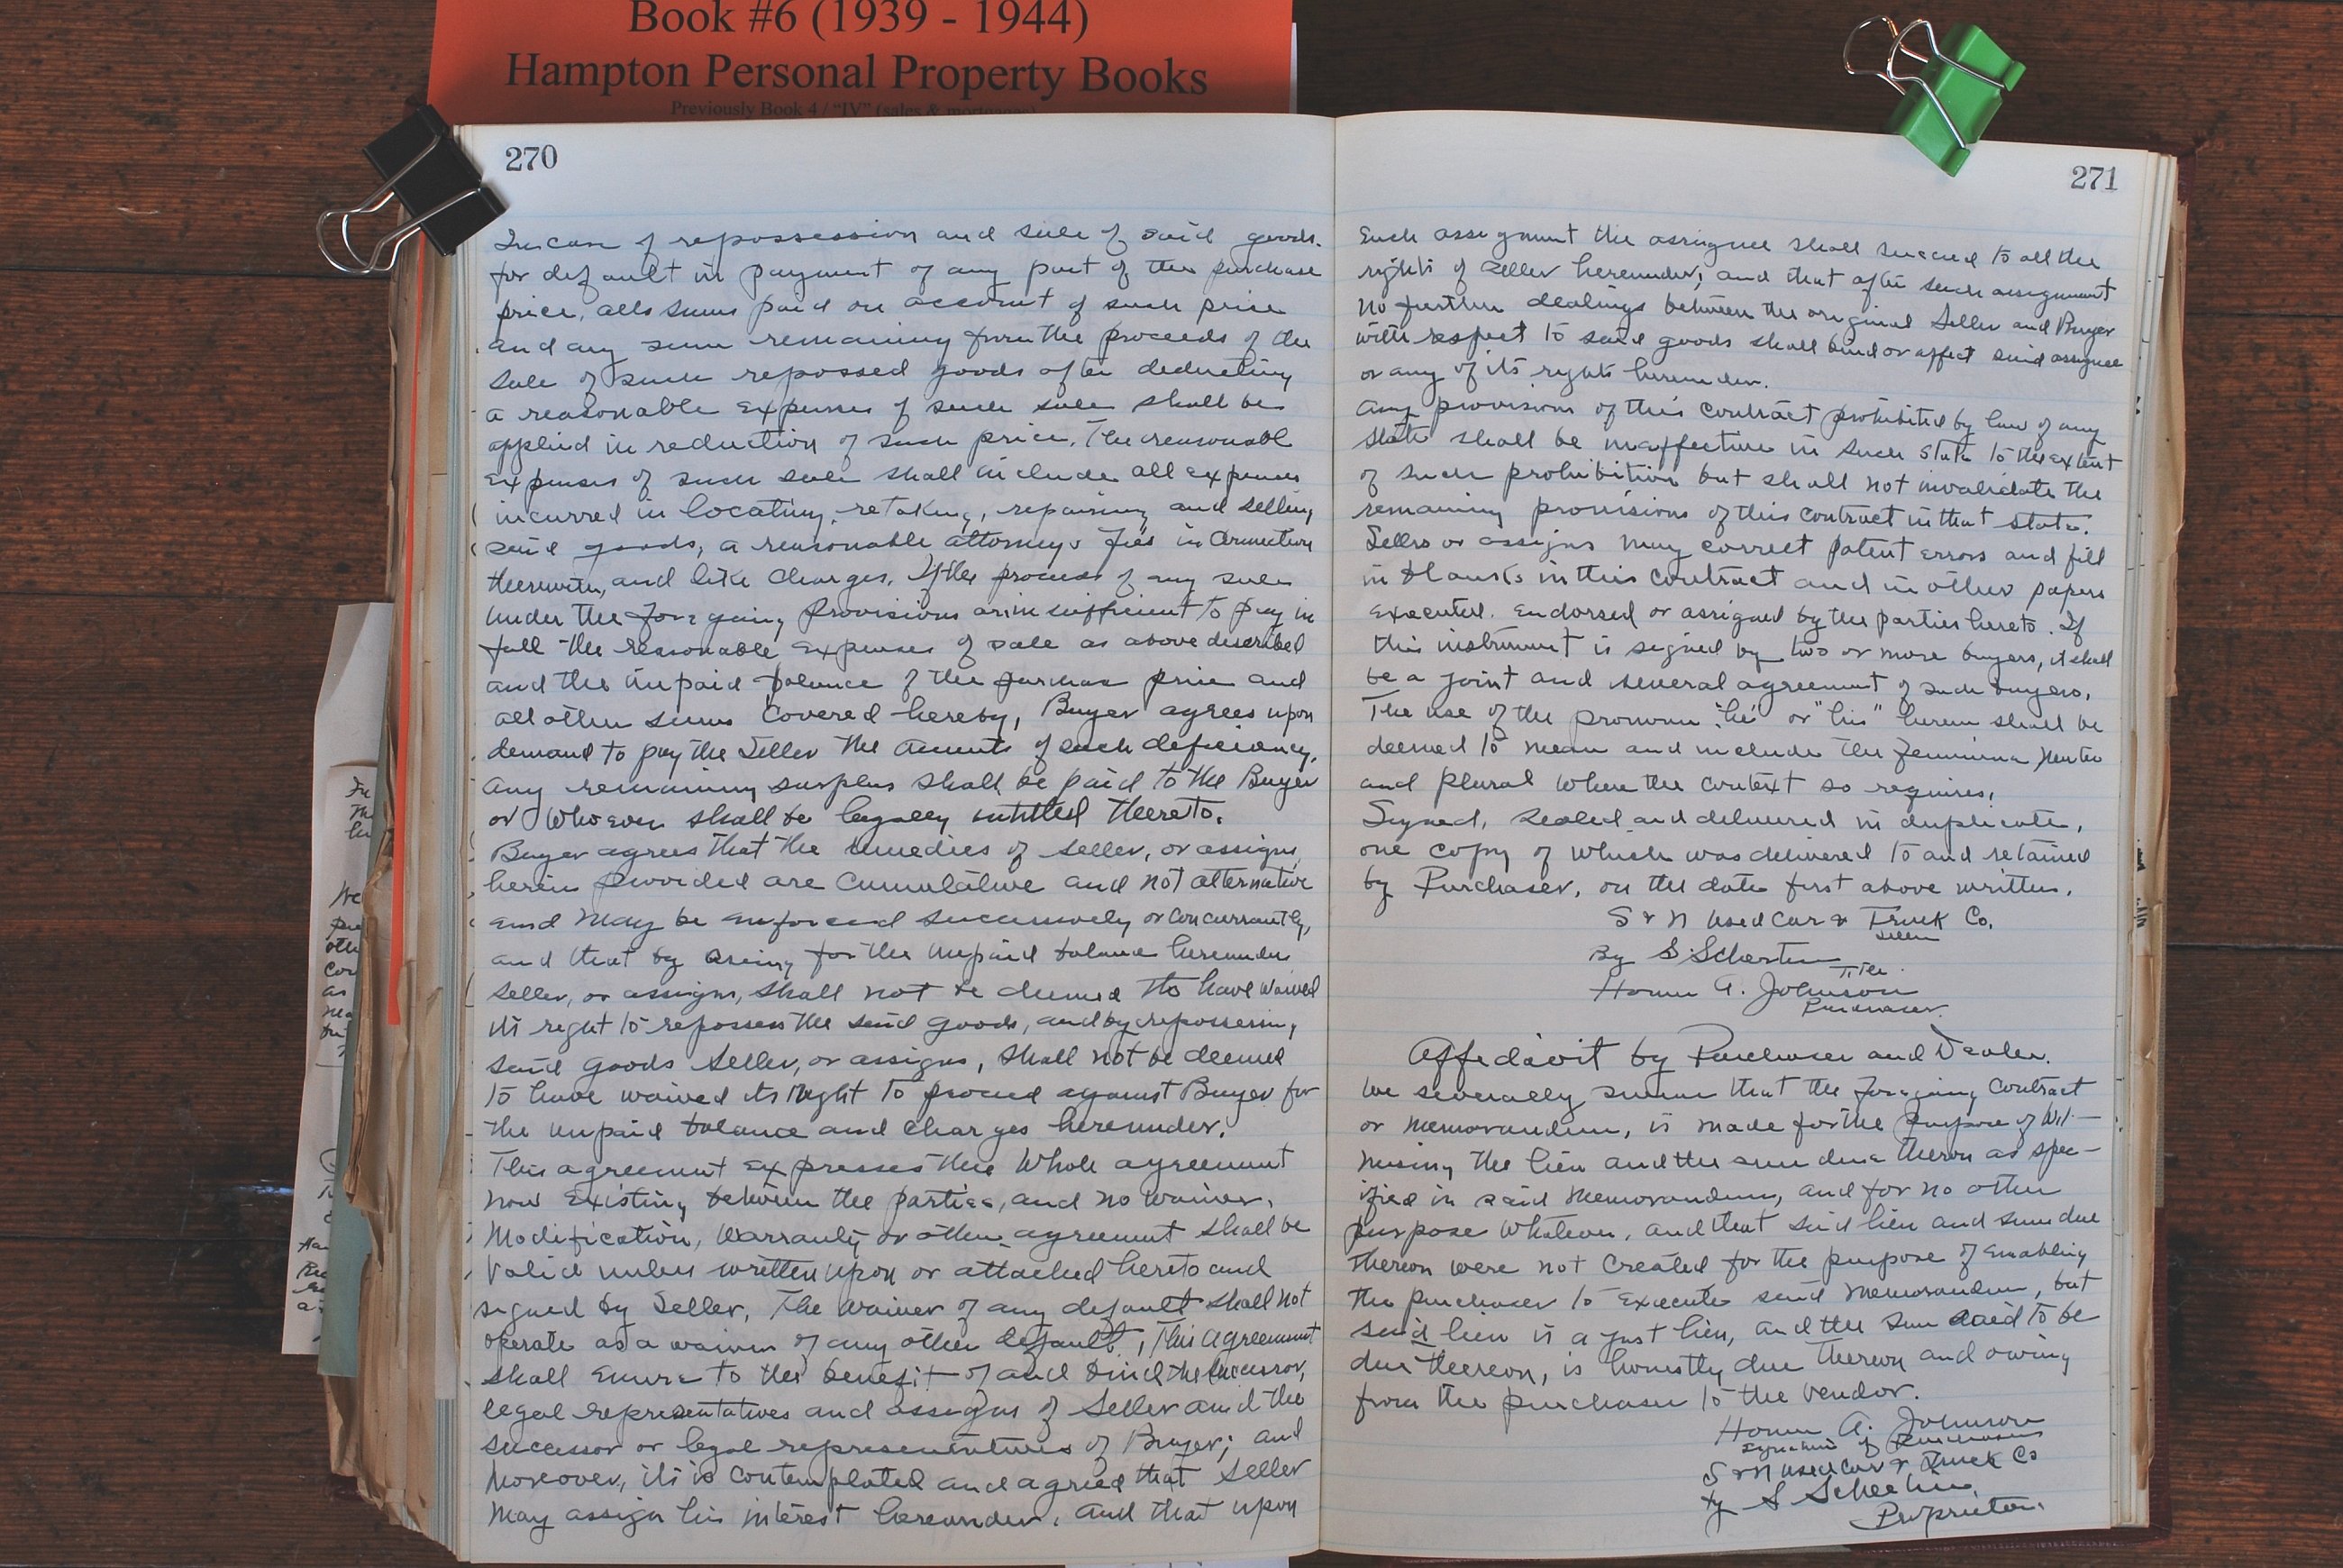 Book #6 (1939 - 1944)
Hampton Personal Property Books
Previously Book 4 / "IV" (sales & mortgages)
270
In case of repossession and sale of said goods.
for default in payment of any part of the purchase
price, all sums paid on account of such price
and any sum remaining from the proceeds of the
sale of such repossed goods after deducting
a reasonable expenses of such sale shall be
applied in reduction of such price. The reasonable
expenses of such sale shall include all expenses
incurred in locating, retaking, repairing and selling
said goods, a reasonable attorneys fees in connection
therewith, and like charges. If the process of any sale
under the foregoing provisions are insufficient to pay in
full the reasonable expenses of sale as above described
and the unpaid balance of the purchase price and
all other sums covered hereby, Buyer agrees upon
demand to pay the Seller the amount of such deficiency.
any remaining surplus shall be paid to the Buyer
or whoever shall be legally entitled thereto.
Buyer agrees that the remedies of seller, or assigns
herein provided are cumulative and not alternative
and may be enforced successively or concurrantly,
and that by suing for the unpaid balance hereunder
seller, or assigns, shall not be deemed to have waived
its right to repossess the said goods, and by repossessing
said goods Seller, or assigns, shall not be deemed
to have waived its right to proceed against Buyer for
the unpaid balance and charges hereunder.
This agreement expresses the whole agreement
now existing between the parties, and no waiver,
modification, warranty or other agreement shall be
valid unless written upon or attached hereto and
signed by Seller. The waiver of any default shall not
operate as a waiver of any other default, This agreement
shall enure to the benefit of and bind the successor,
legal representatives and assigns of Seller and the
successor or legal representatives of Buyer; and
moreover, it is contemplated and agreed that seller
may assign his interest hereunder, and that upon
271
such assignment the assignee shall succeed to all the
rights of seller hereunder; and that after such assignment
no further dealings between the original Seller and Buyer
with respect to said goods shall bind or affect said assignee
or any of its rights hereunder.
any provisions of this contract prohibited by law of any
state shall be ineffective in such state to the extent
of such prohibition but shall not invalidate the
remaining provisions of this contract in that state.
Sellers or assigns may correct patent errors and fill
in blanks in this contract and in other papers
executed. Endorsed or assigned by the parties hereto. If
this instrument is signed by two or more buyers, it shall
be a joint and several agreement of such buyers.
The use of the pronoun "he" or "his" herein shall be
deemed to mean and include the feminine neuter
and plural where the context so requires.
Signed, sealed and delivered in duplicate,
one copy of which was delivered to and retained
by Purchaser, on the date first above written.
S & N Used Car & Truck Co.
Seller
By S.
Title
Homer A. Johnson
Purchaser.
Affidavit by Purchaser and Dealer.
We severally swear that the foregoing contract
or memorandum, is made for the purpose of wit-
nessing the lien and the sum due thereon as spec-
ified in said memorandum, and for no other
purpose whatever, and that said lien and sum due
thereon were not created for the purpose of enabling
the purchaser to execute said memorandum, but
said lien is a just lien, and the sum said to be
due thereon, is honestly due thereon and owing
from the purchaser to the vendor.
Homer A. Johnson
Signature of Purchaser
S & N Used Car & Truck Co
by S
Proprietor.